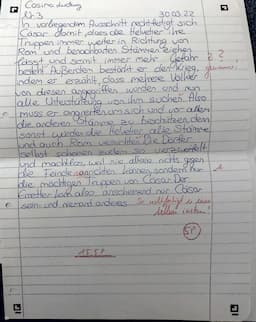 Cosima Ludwig
Nr. 3 30.03.22
In vorliegendem Ausschnitt rechtfertigt sich
Cäsar damit, dass die Helvetier ihre
Truppen immer weiter in Richtung von
Rom und benachbarten Stämmen ziehen
lässt und somit immer mehr Gefahr
besteht. Außerdem bestärkt er den Krieg,
indem er erzählt, dass mehrere Völker
von diesen angegriffen wurden und nun
alle Unterstützung von ihm suchen. Also
muss er angreifen um sich und vor allem
die anderen Stämme zu beschützen, denn
sonst würden die Helvetier alle Stämme
und auch Rom vernichten. Die Dörfer
selbst scheinen zudem so verzweifelt
und machtlos, weil sie alleine nichts gegen
die Feinde können, sondern nur
die mächtigen Truppen von Cäsar. Der
Erretter kann also anscheinend nur Cäsar
sein und niemand anderes.
5P